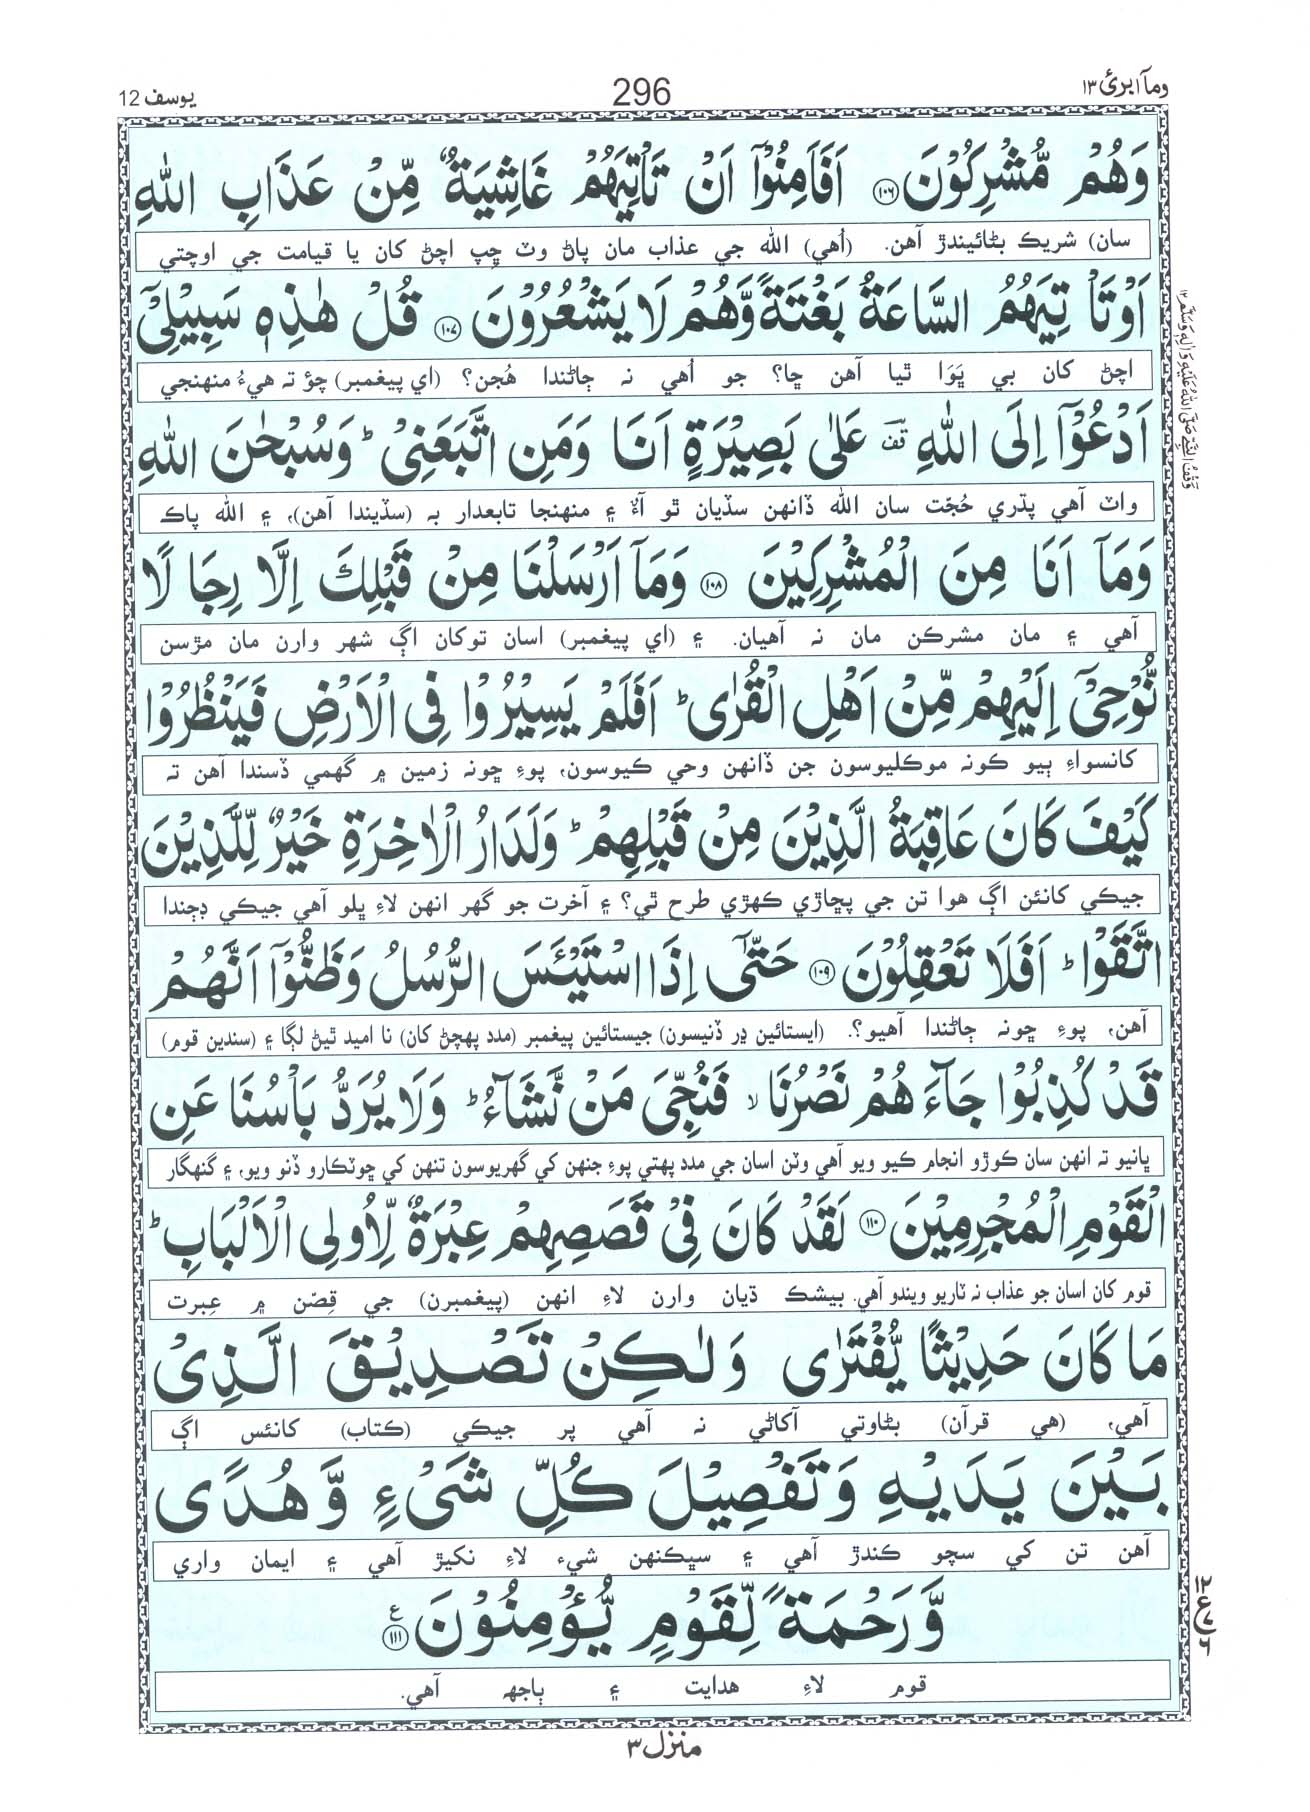 وماۤ ابرئ ١٣
296
يوسف 12
وَهُمْ مُّشْرِكُوْنَ ۝١٠٦ اَفَاَمِنُوْۤا اَنْ تَاْتِيَهُمْ غَاشِيَةٌ مِّنْ عَذَابِ اللّٰهِ
سان) شريڪ بڻائيندڙ آهن. (اُهي) الله جي عذاب مان پاڻ وٽ ڇِپ اچڻ کان يا قيامت جي اوچتي
اَوْ تَاْتِيَهُمُ السَّاعَةُ بَغْتَةً وَّهُمْ لَا يَشْعُرُوْنَ ۝١٠٧ قُلْ هٰذِهٖ سَبِيْلِيْۤ
اچڻ کان بي ڀَوَا ٿيا آهن ڇا؟ جو اُهي نہ ڄاڻندا هُجن؟ (اي پيغمبر) چؤ تہ هيءُ منهنجي
اَدْعُوْۤا اِلَى اللّٰهِ ؔقف عَلٰى بَصِيْرَةٍ اَنَا وَمَنِ اتَّبَعَنِيْ ؕ وَسُبْحٰنَ اللّٰهِ
واٽ آهي پڌري حُجّت سان الله ڏانهن سڏيان ٿو آءٌ ۽ منهنجا تابعدار بہ (سڏيندا آهن)، ۽ الله پاڪ
وَمَاۤ اَنَا مِنَ الْمُشْرِكِيْنَ ۝١٠٨ وَمَاۤ اَرْسَلْنَا مِنْ قَبْلِكَ اِلَّا رِجَالًا
آهي ۽ مان مشرڪن مان نہ آهيان. ۽ (اي پيغمبر) اسان توکان اڳ شهر وارن مان مڙسن
نُّوْحِيْۤ اِلَيْهِمْ مِّنْ اَهْلِ الْقُرٰى ؕ اَفَلَمْ يَسِيْرُوْا فِي الْاَرْضِ فَيَنْظُرُوْا
کانسواءِ ٻيو ڪونہ موڪليوسون جن ڏانهن وحي ڪيوسون، پوءِ ڇونہ زمين ۾ گهمي ڏسندا آهن تہ
كَيْفَ كَانَ عَاقِبَةُ الَّذِيْنَ مِنْ قَبْلِهِمْ ؕ وَلَدَارُ الْاٰخِرَةِ خَيْرٌ لِّلَّذِيْنَ
جيڪي کانئن اڳ هوا تن جي پڇاڙي ڪهڙي طرح ٿي؟ ۽ آخرت جو گهر انهن لاءِ ڀلو آهي جيڪي ڊڄندا
اتَّقَوْا ؕ اَفَلَا تَعْقِلُوْنَ ۝١٠٩ حَتّٰۤى اِذَا اسْتَيْـَٔسَ الرُّسُلُ وَظَنُّوْۤا اَنَّهُمْ
آهن، پوءِ ڇونہ ڄاڻندا آهيو؟. (ايستائين ڍر ڏنيسون) جيستائين پيغمبر (مدد پهچڻ کان) نا اميد ٿيڻ لڳا ۽ (سندين قوم)
قَدْ كُذِبُوْا جَآءَهُمْ نَصْرُنَا ۙ فَنُجِّيَ مَنْ نَّشَآءُ ؕ وَلَا يُرَدُّ بَاْسُنَا عَنِ
ڀانيو تہ انهن سان ڪوڙو انجام ڪيو ويو آهي وٽن اسان جي مدد پهتي پوءِ جنهن کي گهريوسون تنهن کي ڇوٽڪارو ڏنو ويو، ۽ گنهگار
الْقَوْمِ الْمُجْرِمِيْنَ ۝١١٠ لَقَدْ كَانَ فِيْ قَصَصِهِمْ عِبْرَةٌ لِّاُولِي الْاَلْبَابِ ؕ
قوم کان اسان جو عذاب نہ ٽاريو ويندو آهي. بيشڪ ڌيان وارن لاءِ انهن (پيغمبرن) جي قِصّن ۾ عِبرت
مَا كَانَ حَدِيْثًا يُّفْتَرٰى وَلٰكِنْ تَصْدِيْقَ الَّذِيْ
آهي، (هي قرآن) بڻاوتي آکاڻي نہ آهي پر جيڪي (ڪتاب) کانئس اڳ
بَيْنَ يَدَيْهِ وَتَفْصِيْلَ كُلِّ شَيْءٍ وَّهُدًى
آهن تن کي سچو ڪندڙ آهي ۽ سڀڪنهن شيء لاءِ نکيڙ آهي ۽ ايمان واري
وَّرَحْمَةً لِّقَوْمٍ يُّؤْمِنُوْنَ ۝١١١ ع
قوم لاءِ هدايت ۽ ٻاجهہ آهي.
منزل ٣
وَقْفُ النَّبِيِّ صَلَّى اللّٰهُ عَلَيْهِ وَاٰلِهٖ وَسَلَّمَ ١٢